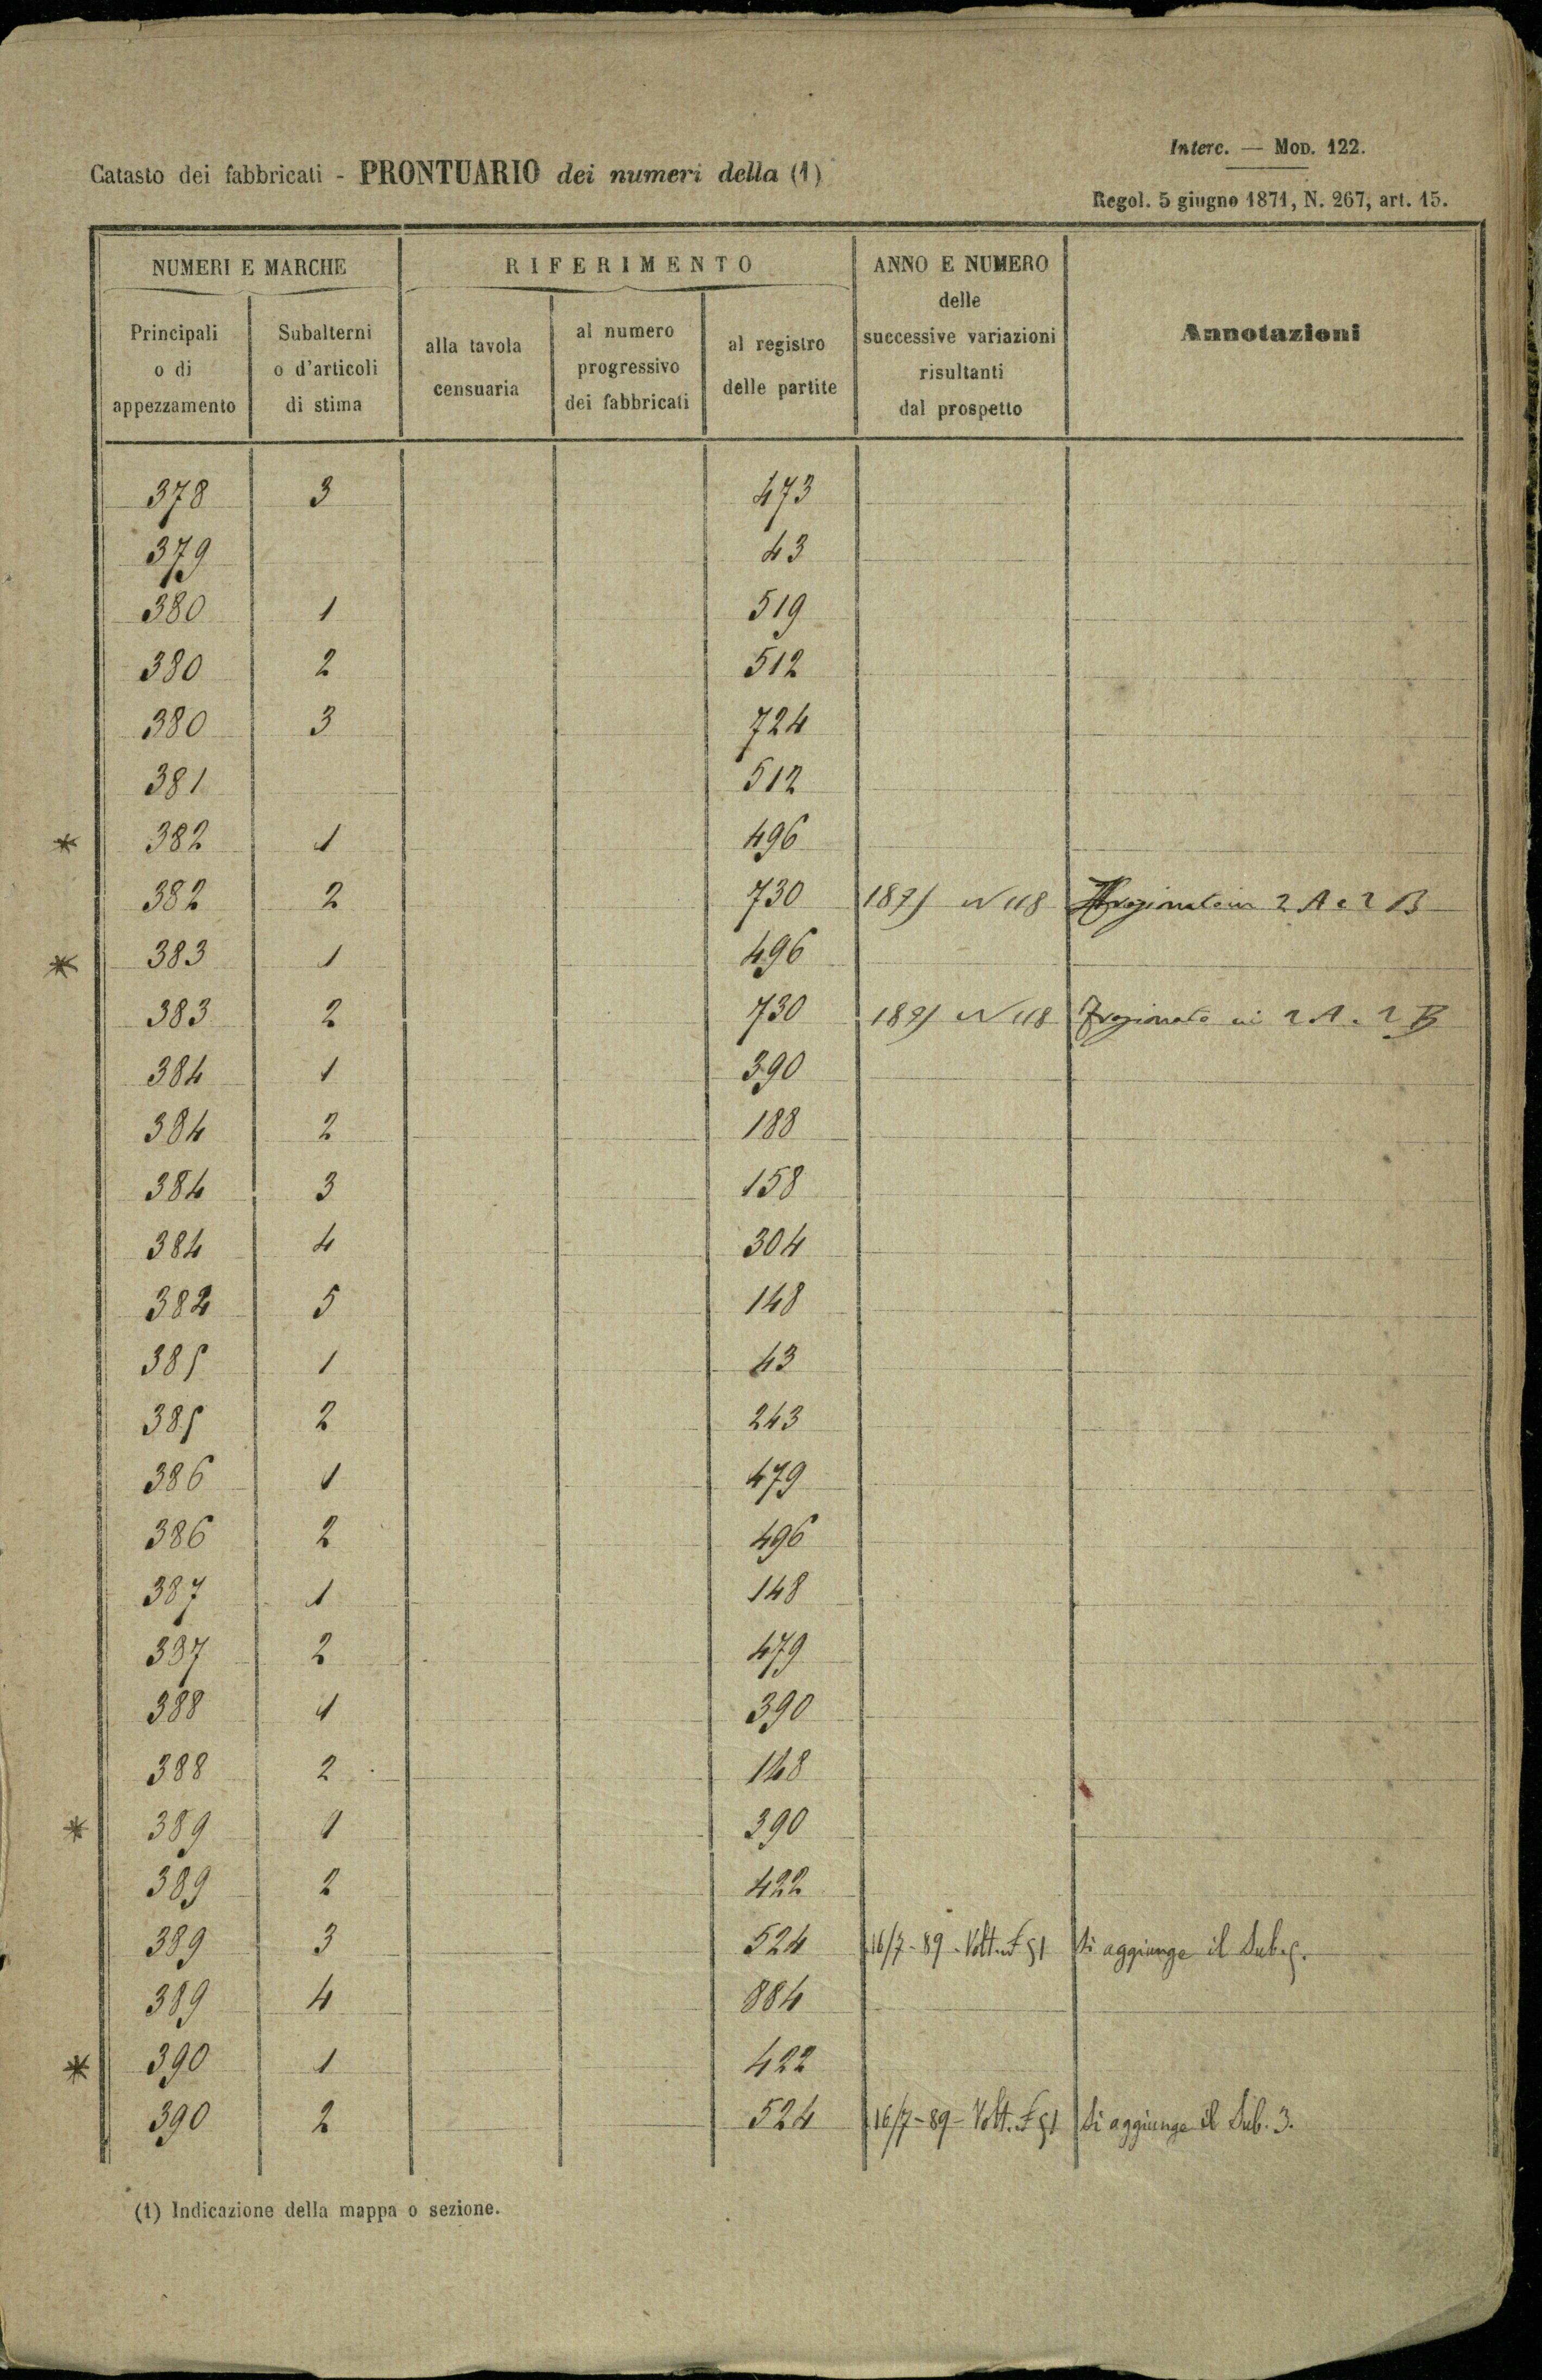 Interc. — Mod. 122.
Catasto dei fabbricati - PRONTUARIO dei numeri della (1)
Regol. 5 giugno 1871, N. 267, art. 15.
NUMERI E MARCHE RIFERIMENTO ANNO E NUMERO delle successive variazioni risultanti dal prospetto Annotazioni
Principali o di appezzamento Subalterni o d'articoli di stima alla tavola censuaria al numero progressivo dei fabbricati al registro delle partite
378 3 473
379 43
380 1 519
380 2 512
380 3 724
381 512
* 382 1 496
382 2 730 N 118 2 A e 2 B
* 383 1 496
383 2 730 N 118 Frazionato in 2 A e 2 B
384 1 390
384 2 188
384 3 158
384 4 304
384 5 148
385 1 43
385 2 243
386 1 479
386 2 496
387 1 148
387 2 479
388 1 390
388 2 148
* 389 1 390
389 2 422
389 3 524 16/7-89-Volt. 51 Si aggiunge il Sub. 5.
389 4 884
* 390 1 422
390 2 524 16/7-89-Volt. 51 Si aggiunge il Sub. 3.
(1) Indicazione della mappa o sezione.